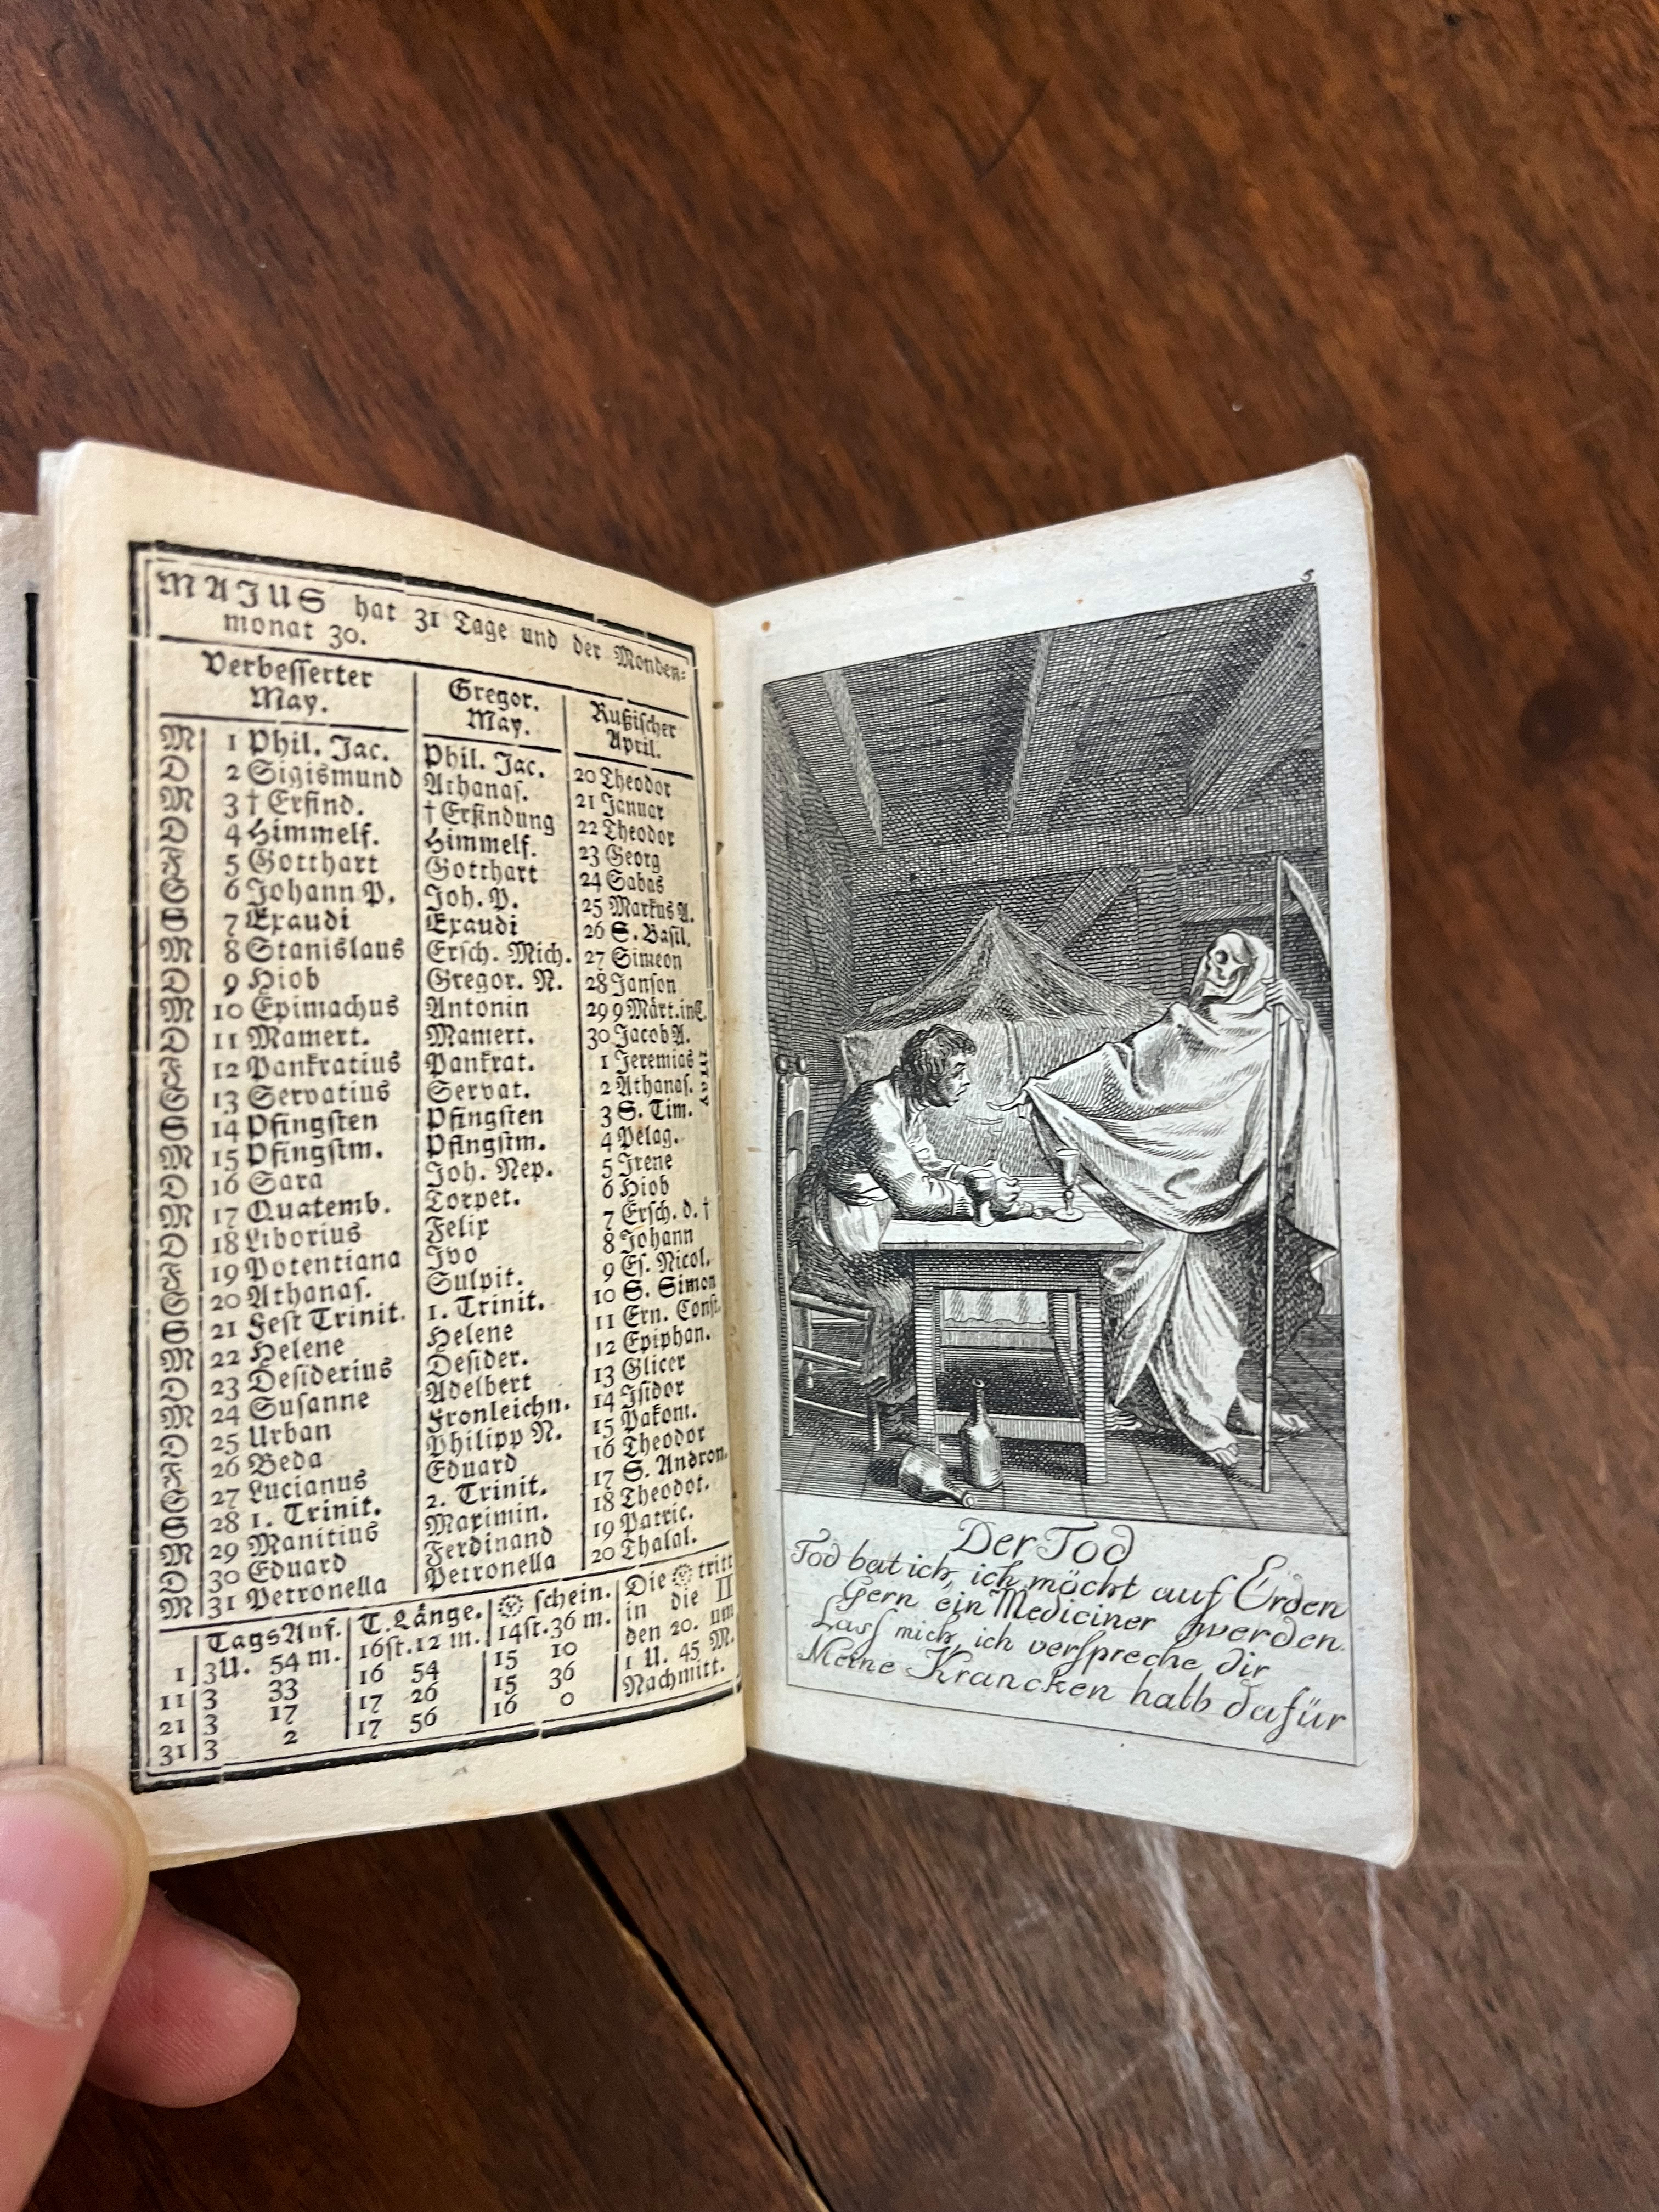 MAJUS hat 31 Tage und der Monden-
monat 30.
Verbesserter May. | Gregor. May. | Rußischer April.
M 1 Phil. Jac. | Phil. Jac. | 20 Theodor
D 2 Sigismund | Athanas. | 21 Januar
M 3 † Erfind. | † Erfindung | 22 Theodor
D 4 Himmelf. | Himmelf. | 23 Georg
F 5 Gotthart | Gotthart | 24 Sabas
S 6 Johann P. | Joh. P. | 25 Markus A.
S 7 Exaudi | Exaudi | 26 S. Basil.
M 8 Stanislaus | Ersch. Mich. | 27 Simeon
D 9 Hiob | Gregor. N. | 28 Janson
M 10 Epimachus | Antonin | 29 9 Märt. in C.
D 11 Mamert. | Mamert. | 30 Jacob A.
F 12 Pankratius | Pankrat. | 1 Jeremias May
S 13 Servatius | Servat. | 2 Athanas.
S 14 Pfingsten | Pfingsten | 3 S. Tim.
M 15 Pfingstm. | Pfingstm. | 4 Pelag.
D 16 Sara | Joh. Nep. | 5 Irene
M 17 Quatemb. | Torpet. | 6 Hiob
D 18 Liborius | Felix | 7 Ersch. d. †
F 19 Potentiana | Ivo | 8 Johann
S 20 Athanas. | Sulpit. | 9 Es. Nicol.
S 21 Fest Trinit. | 1. Trinit. | 10 S. Simon
M 22 Helene | Helene | 11 Ern. Const.
D 23 Desiderius | Desider. | 12 Epiphan.
M 24 Susanne | Adelbert | 13 Glicer
D 25 Urban | Fronleichn. | 14 Isidor
F 26 Beda | Philipp N. | 15 Pakom.
S 27 Lucianus | Eduard | 16 Theodor
S 28 1. Trinit. | 2. Trinit. | 17 S. Andron.
M 29 Manitius | Maximin. | 18 Theodot.
D 30 Eduard | Ferdinand | 19 Patric.
M 31 Petronella | Petronella | 20 Thalal.
TagsAnf. | T. Länge. | ☼ schein. | Die ☼ tritt
1 | 3 U. 54 m. | 16 st. 12 m. | 14 st. 36 m. | in die II
11 | 3 33 | 16 54 | 15 10 | den 20. um
21 | 3 17 | 17 26 | 15 36 | 1 U. 45 M.
31 | 3 2 | 17 56 | 16 0 | Nachmitt.
5
Der Tod
Tod bat ich, ich möcht auf Erden
Gern ein Mediciner werden.
Lass mich, ich verspreche dir
Meine Krancken halb dafür